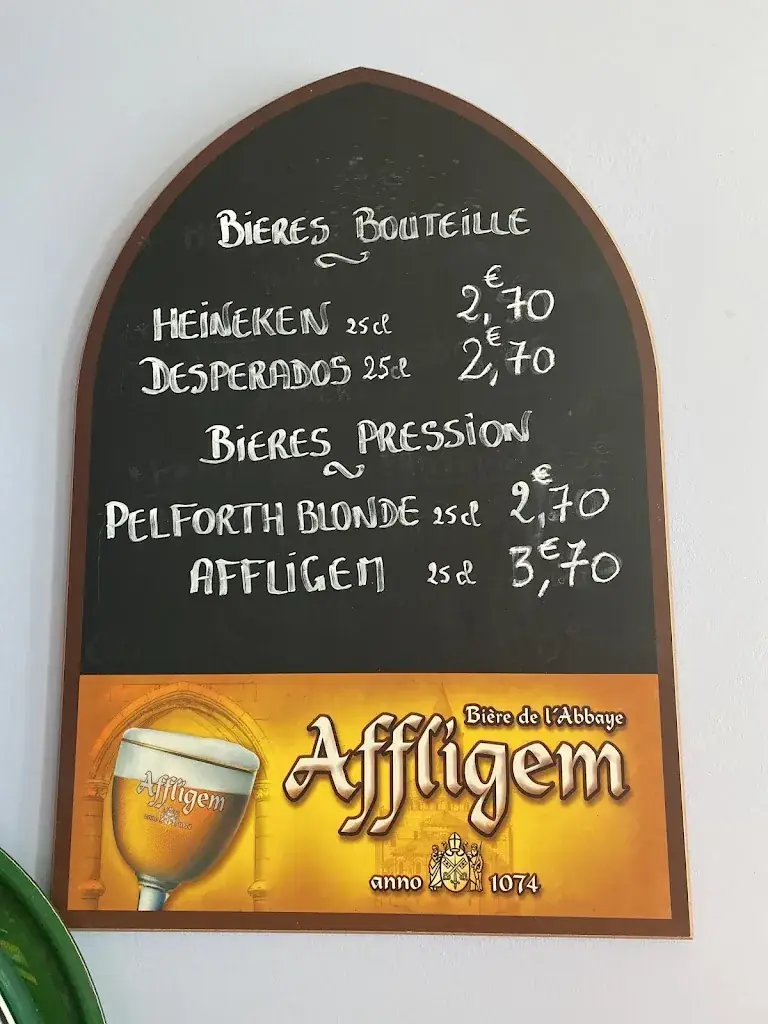 BIERES BOUTEILLE
HEINEKEN 25cl 2,€70
DESPERADOS 25cl 2,€70
BIERES PRESSION
PELFORTH BLONDE 25cl 2,€70
AFFLIGEM 25cl 3,€70
Bière de l'Abbaye
Affligem
anno 1074
Affligem